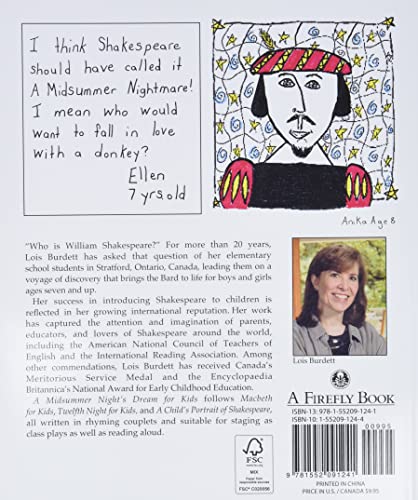 I think Shakespeare
should have called it
A Midsummer Nightmare!
I mean who would
want to fall in love
with a donkey?
Ellen
7 yrs. old
Anika Age 8
"Who is William Shakespeare?" For more than 20 years,
Lois Burdett has asked that question of her elementary
school students in Stratford, Ontario, Canada, leading them on a
voyage of discovery that brings the Bard to life for boys and girls
ages seven and up.
Her success in introducing Shakespeare to children is
reflected in her growing international reputation. Her work
has captured the attention and imagination of parents,
educators, and lovers of Shakespeare around the world,
including the American National Council of Teachers of
English and the International Reading Association. Among
other commendations, Lois Burdett has received Canada's
Meritorious Service Medal and the Encyclopaedia
Britannica's National Award for Early Childhood Education.
A Midsummer Night's Dream for Kids follows Macbeth
for Kids, Twelfth Night for Kids, and A Child's Portrait of Shakespeare,
all written in rhyming couplets and suitable for staging as
class plays as well as reading aloud.
Lois Burdett
A FIREFLY BOOK
ISBN-13: 978-1-55209-124-1
ISBN-10: 1-55209-124-4
00995
9 781552 091241
PRINTED IN CHINA
PRICE IN U.S. / CANADA $9.95
FSC
www.fsc.org
MIX
Paper from
responsible sources